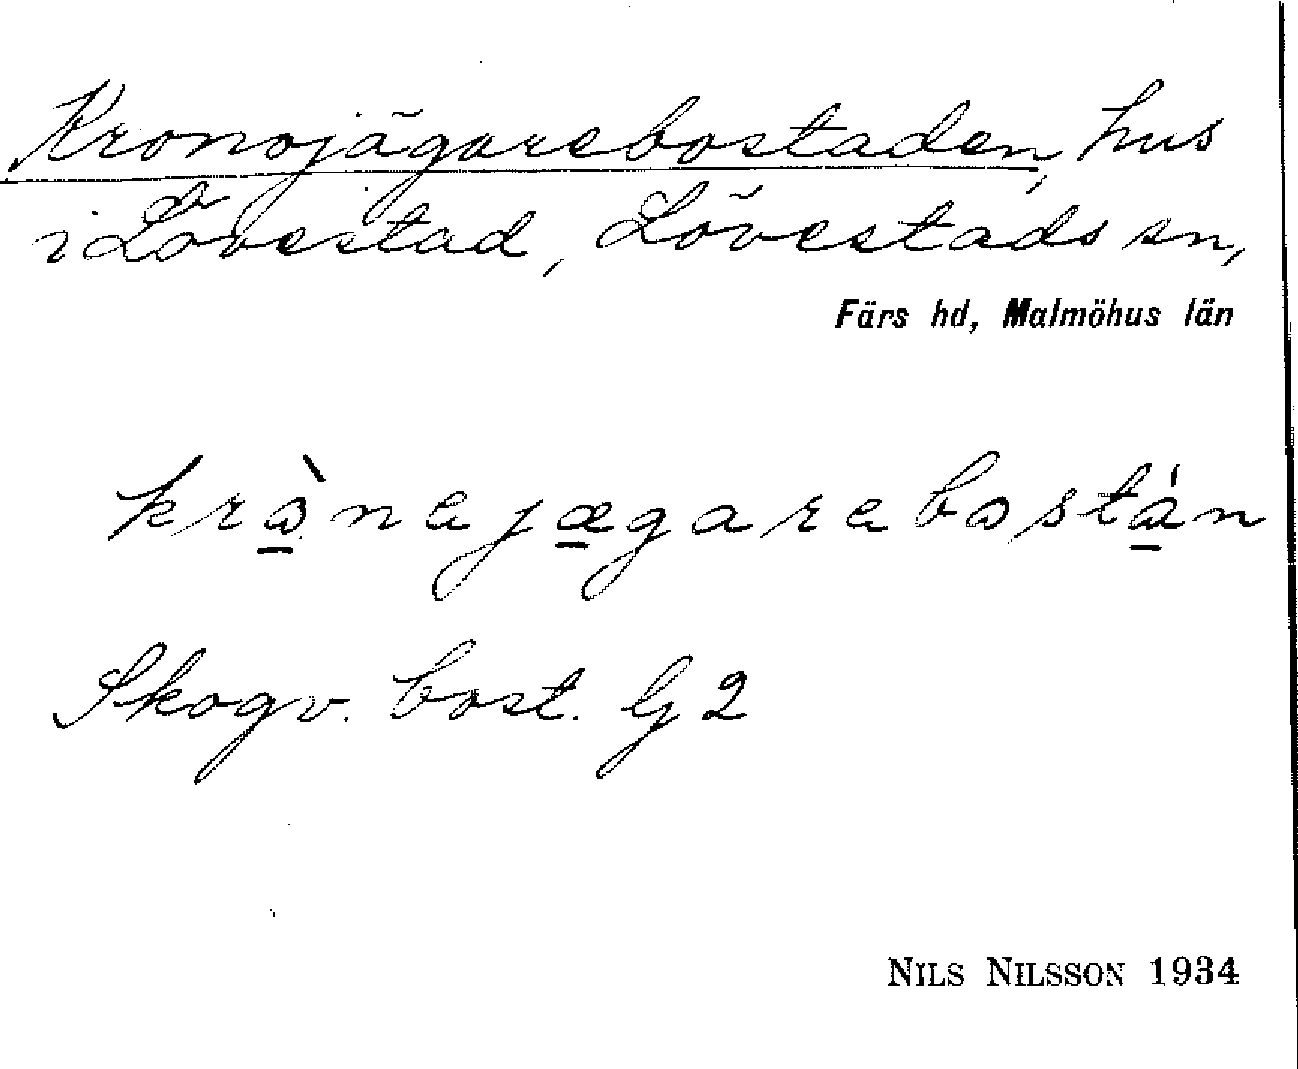 Kronojägarebostaden, hus
i Lövestad, Lövestads sn,
Färs hd, Malmöhus län
krònejægarebostán
Skogv. bost. G 2
NILS NILSSON 1934